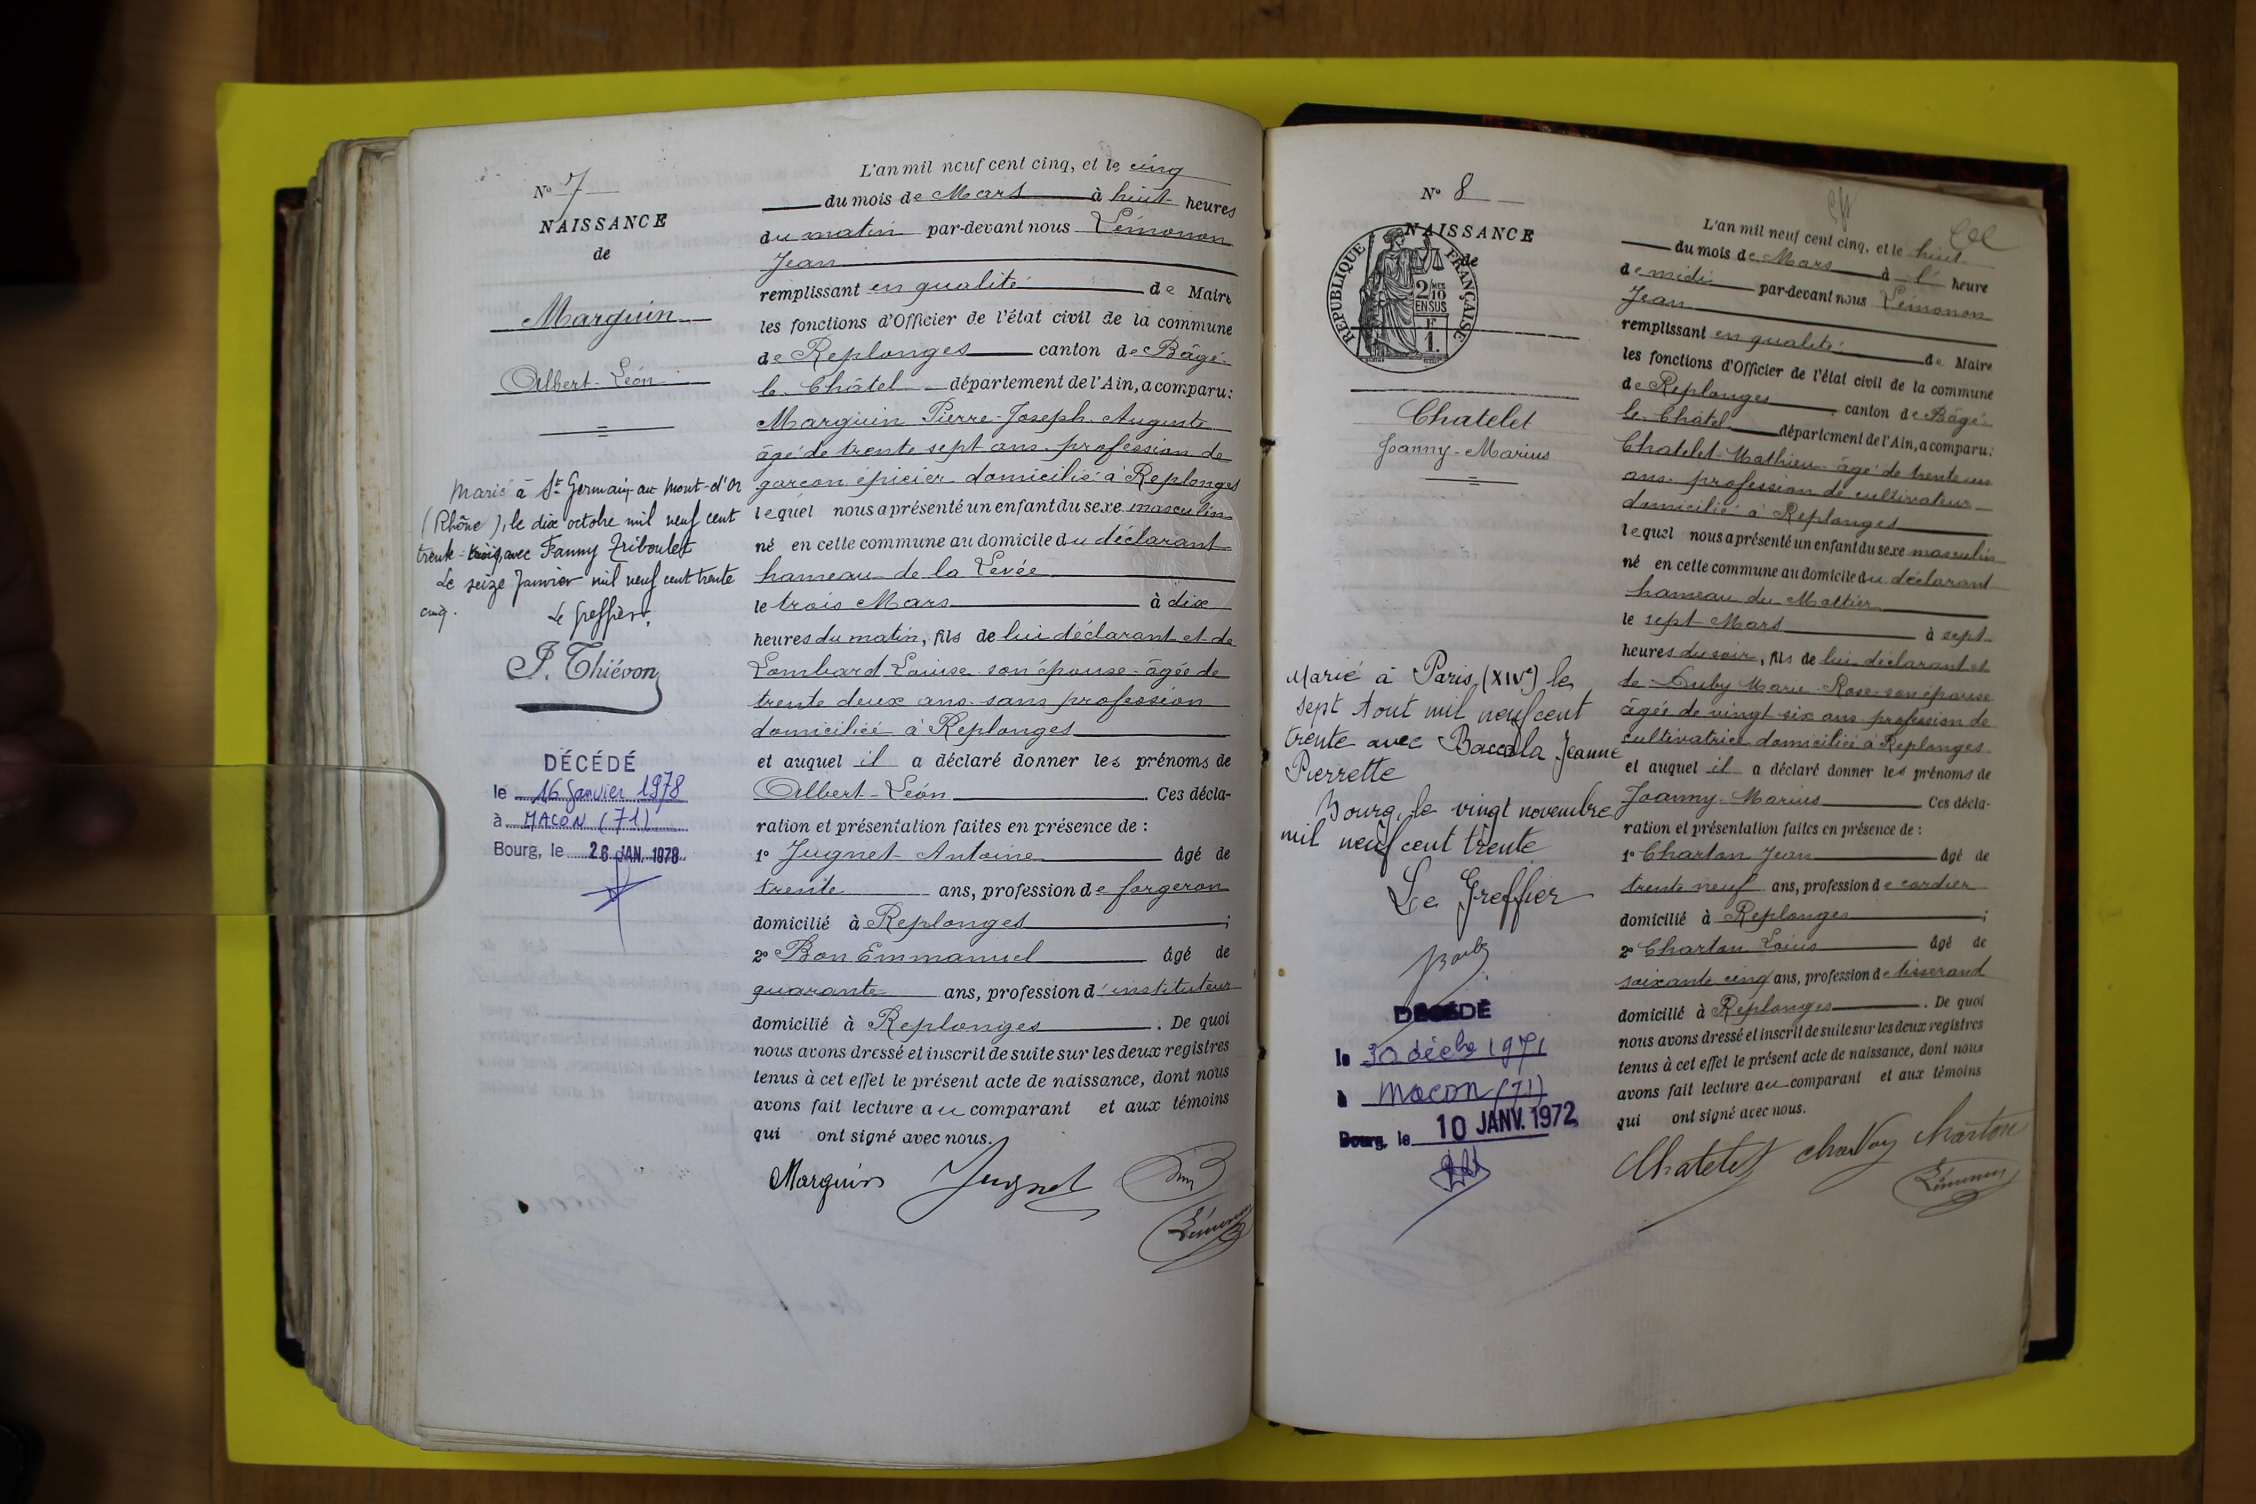 N° 7
NAISSANCE
de
Marguin
Albert-Léon
Marié à St Germain-au Mont-d'Or
(Rhône), le dix octobre mil neuf cent
trente-trois, avec Fanny Triboulet
Le seize Janvier mil neuf cent trente
cinq.
Le Greffier,
P. Thiévon
DÉCÉDÉ
le 16 Janvier 1978
à MACON (71)
Bourg, le 26 JAN. 1978
L'an mil neuf cent cinq, et le cinq
du mois de Mars à huit heures
du matin par-devant nous Lémonon
Jean
remplissant en qualité de Maire
les fonctions d'Officier de l'état civil de la commune
de Replonges canton de Bâgé-
le-Châtel département de l'Ain, a comparu:
Marguin Pierre-Joseph-Auguste
âgé de trente sept ans profession de
garçon épicier domicilié à Replonges
lequel nous a présenté un enfant du sexe masculin
né en cette commune au domicile du déclarant
hameau de la Levée
le trois Mars à dix
heures du matin, fils de lui déclarant et de
Lombard Louise son épouse âgée de
trente deux ans sans profession
domiciliée à Replonges
et auquel il a déclaré donner les prénoms de
Albert-Léon . Ces décla-
ration et présentation faites en présence de :
1° Jugnet Antoine âgé de
trente ans, profession de forgeron
domicilié à Replonges ;
2° Bon Emmanuel âgé de
quarante ans, profession d'instituteur
domicilié à Replonges . De quoi
nous avons dressé et inscrit de suite sur les deux registres
tenus à cet effet le présent acte de naissance, dont nous
avons fait lecture au comparant et aux témoins
qui ont signé avec nous.
Marguin Jugnet Bon
Lémonon
N° 8
NAISSANCE
de
RÉPUBLIQUE FRANÇAISE
2/10 MES
EN SUS
F
1.
Chatelet
Joanny-Marius
Marié à Paris (XIVe) le
sept Août mil neuf cent
trente avec Baccala Jeanne
Pierrette
Bourg, le vingt novembre
mil neuf cent trente
Le Greffier
DÉCÉDÉ
le 30 décbe 1971
à Macon (71)
Bourg, le 10 JANV. 1972
L'an mil neuf cent cinq, et le huit
du mois de Mars à l' heure
de midi par-devant nous Lémonon
Jean
remplissant en qualité de Maire
les fonctions d'Officier de l'état civil de la commune
de Replonges canton de Bâgé-
le-Châtel département de l'Ain, a comparu:
Chatelet Mathieu âgé de trente un
ans profession de cultivateur
domicilié à Replonges
lequel nous a présenté un enfant du sexe masculin
né en cette commune au domicile du déclarant
hameau du Mottier
le sept Mars à sept
heures du soir, fils de lui déclarant et
de Auby Marie-Rose son épouse
âgée de vingt six ans profession de
cultivatrice domiciliée à Replonges
et auquel il a déclaré donner les prénoms de
Joanny-Marius Ces décla-
ration et présentation faites en présence de :
1° Charton Jean âgé de
trente neuf ans, profession de cordier
domicilié à Replonges ;
2° Charton Louis âgé de
soixante cinq ans, profession de tisserand
domicilié à Replonges . De quoi
nous avons dressé et inscrit de suite sur les deux registres
tenus à cet effet le présent acte de naissance, dont nous
avons fait lecture au comparant et aux témoins
qui ont signé avec nous.
Chatelet Charton
Lémonon